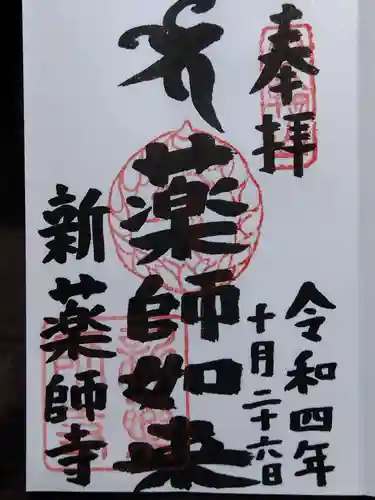 奉拝
令和四年
十月二十六日
薬師如来
新薬師寺